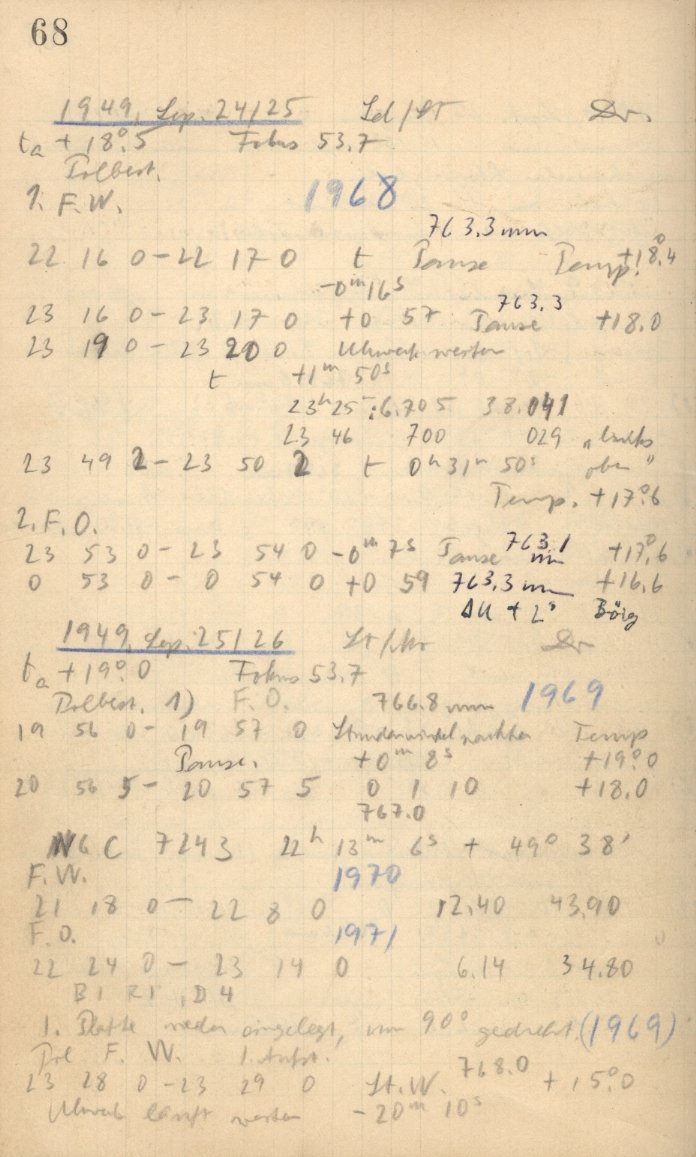 68
1949, Sep. 24/25 Sel/St Dr.
ta + 18°.5 Fokus 53.7
Polbest.
1. F.W. 1968
763.3 mm
22 16 0 – 22 17 0 t Pause Temp. +18°.4
-0m 16s
23 16 0 – 23 17 0 +0 57 763,3 Pause +18.0
23 19 0 – 23 20 0 Uhrwerk
t +1m 50s
23h 25 : 6.705 38.041
23 46 700 029 „links
23 49 2 – 23 50 2 t 0h 31m 50s oben“
Temp. +17°.6
2. F.O.
23 53 0 – 23 54 0 -0m 7s Pause 763,1 mm +17°.6
0 53 0 – 0 54 0 +0 59 763,3 mm +16.6
AU + 2s
1949, Sep. 25/26 Dr
ta +19°.0 Fokus 53.7
Polbest. 1) F.O. 766.8 mm 1969
19 56 0 – 19 57 0 Stundenwinkel Temp
Pause. +0m 8s +19°.0
20 56 5 – 20 57 5 0 1 10 +18.0
767.0
NGC 7243 22h 13m 6s + 49° 38'
F.W. 1970
21 18 0 – 22 8 0 12,40 43,90
F.O. 1971
22 24 0 – 23 14 0 6.14 34.80
B1 R1, D4
1. Platte wieder eingelegt, um 90° gedreht. (1969)
Pol F. W. 1. Aufst.
23 28 0 – 23 29 0 St.W. 768.0 + 15°.0
Uhrwerk läuft -20m 10s